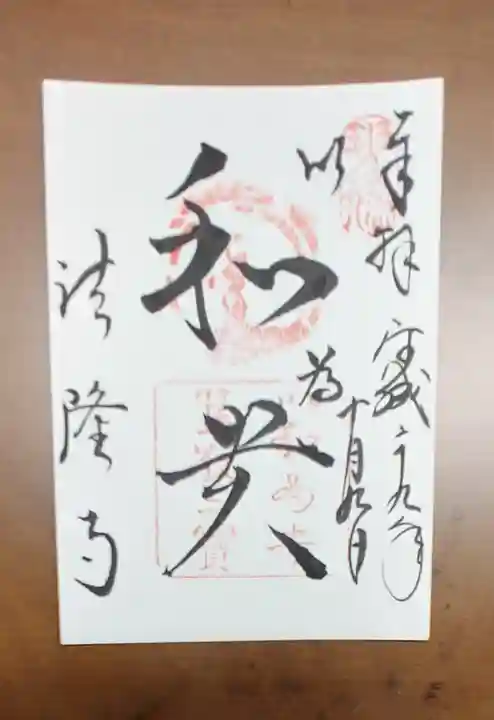 奉拝 平成二十九年
十月九日
以
和
為
貴
法隆寺